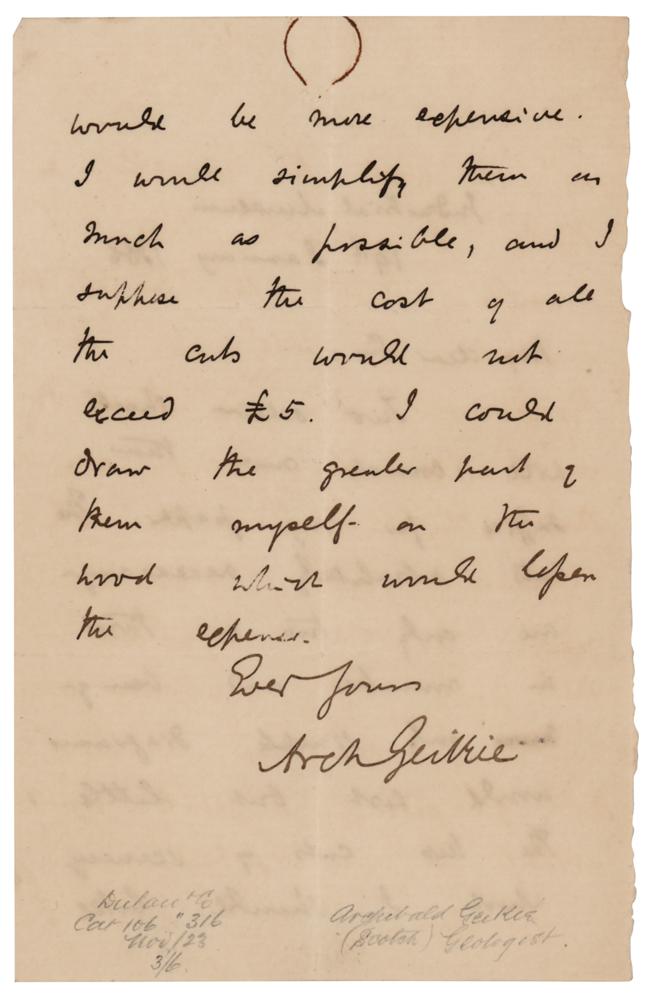 would be more expensive.
I would simplify them as
much as possible, and I
suppose the cost of all
the cuts would not
exceed £5. I could
draw the greater part of
them myself on the
wood which would lessen
the expense.
Ever yours
Arch Geikie
Dulau & Co
Cat 106 " 316
Nov/23
3/6.
Archibald Geikie
(Scotch) Geologist.